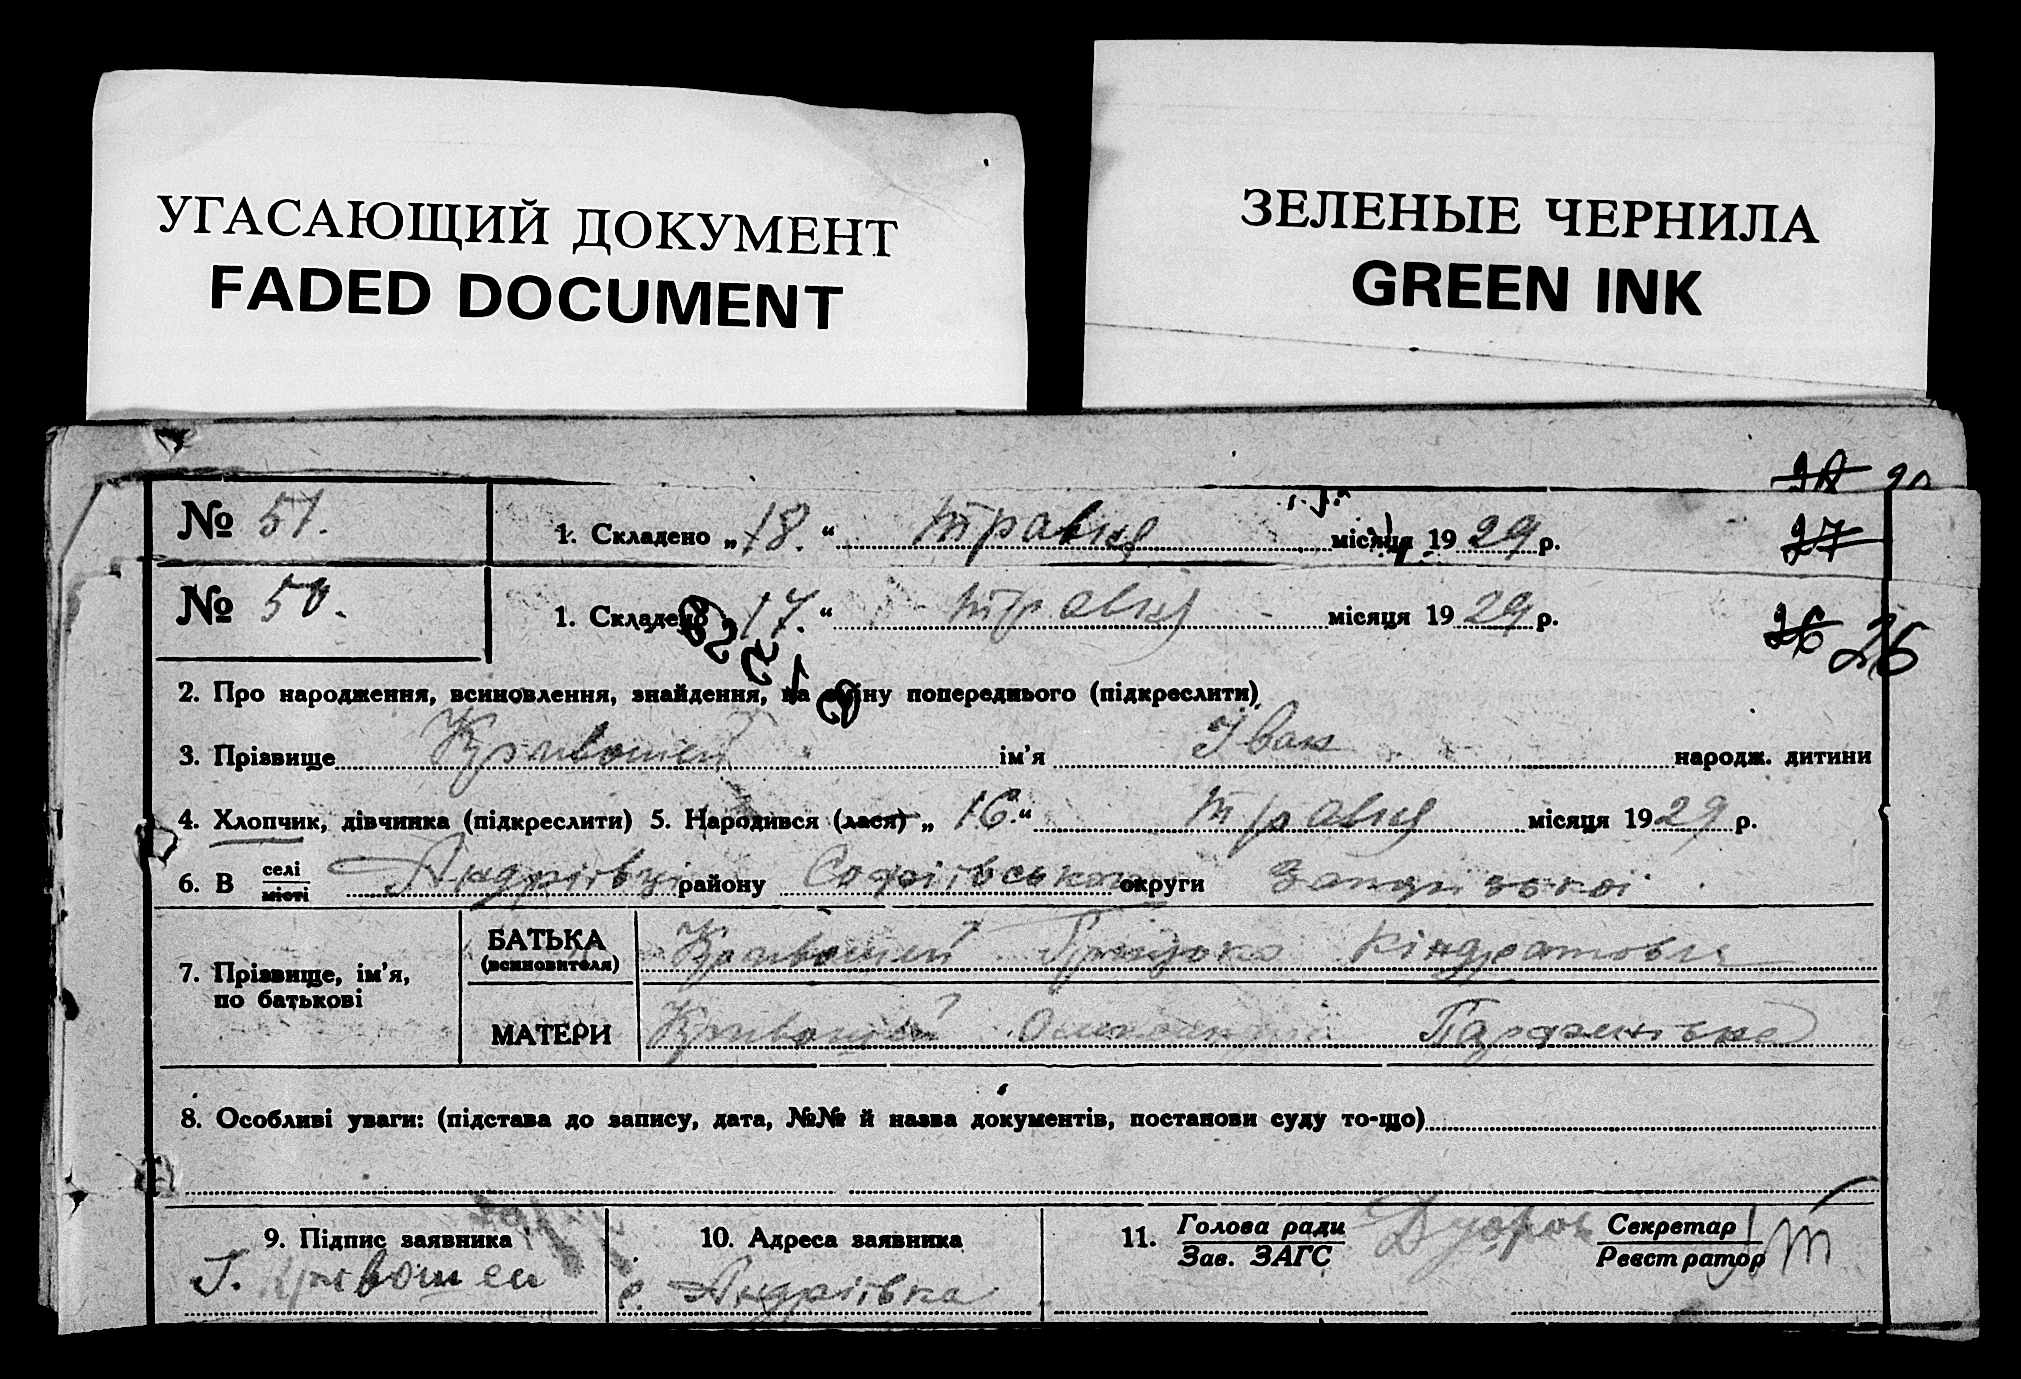 УГАСАЮЩИЙ ДОКУМЕНТ
FADED DOCUMENT
ЗЕЛЕНЫЕ ЧЕРНИЛА
GREEN INK
№ 51. 1. Складено „18.“ травня місяця 1929 р. 27
№ 50. 1. Складено „17.“ травня місяця 1929 р. 26 26
2. Про народження, всиновлення, знайдення, на зміну попереднього (підкреслити)
3. Прізвище Кривошей ім'я Іван народж. дитини
4. Хлопчик, дівчинка (підкреслити) 5. Народився (лася) „16“ травня місяця 1929 р.
6. В селі місті Андріївці району Софіївського округи Запорізької
7. Прізвище, ім'я, по батькові
БАТЬКА (всиновителя) Кривошей Грицько Кіндратович
МАТЕРИ Кривошей
8. Особливі уваги: (підстава до запису, дата, №№ й назва документів, постанови суду то-що)
9. Підпис заявника
Г. Кривошей
10. Адреса заявника
с. Андріївка
11. Голова ради
Зав. ЗАГС
Секретар
Реєстратор